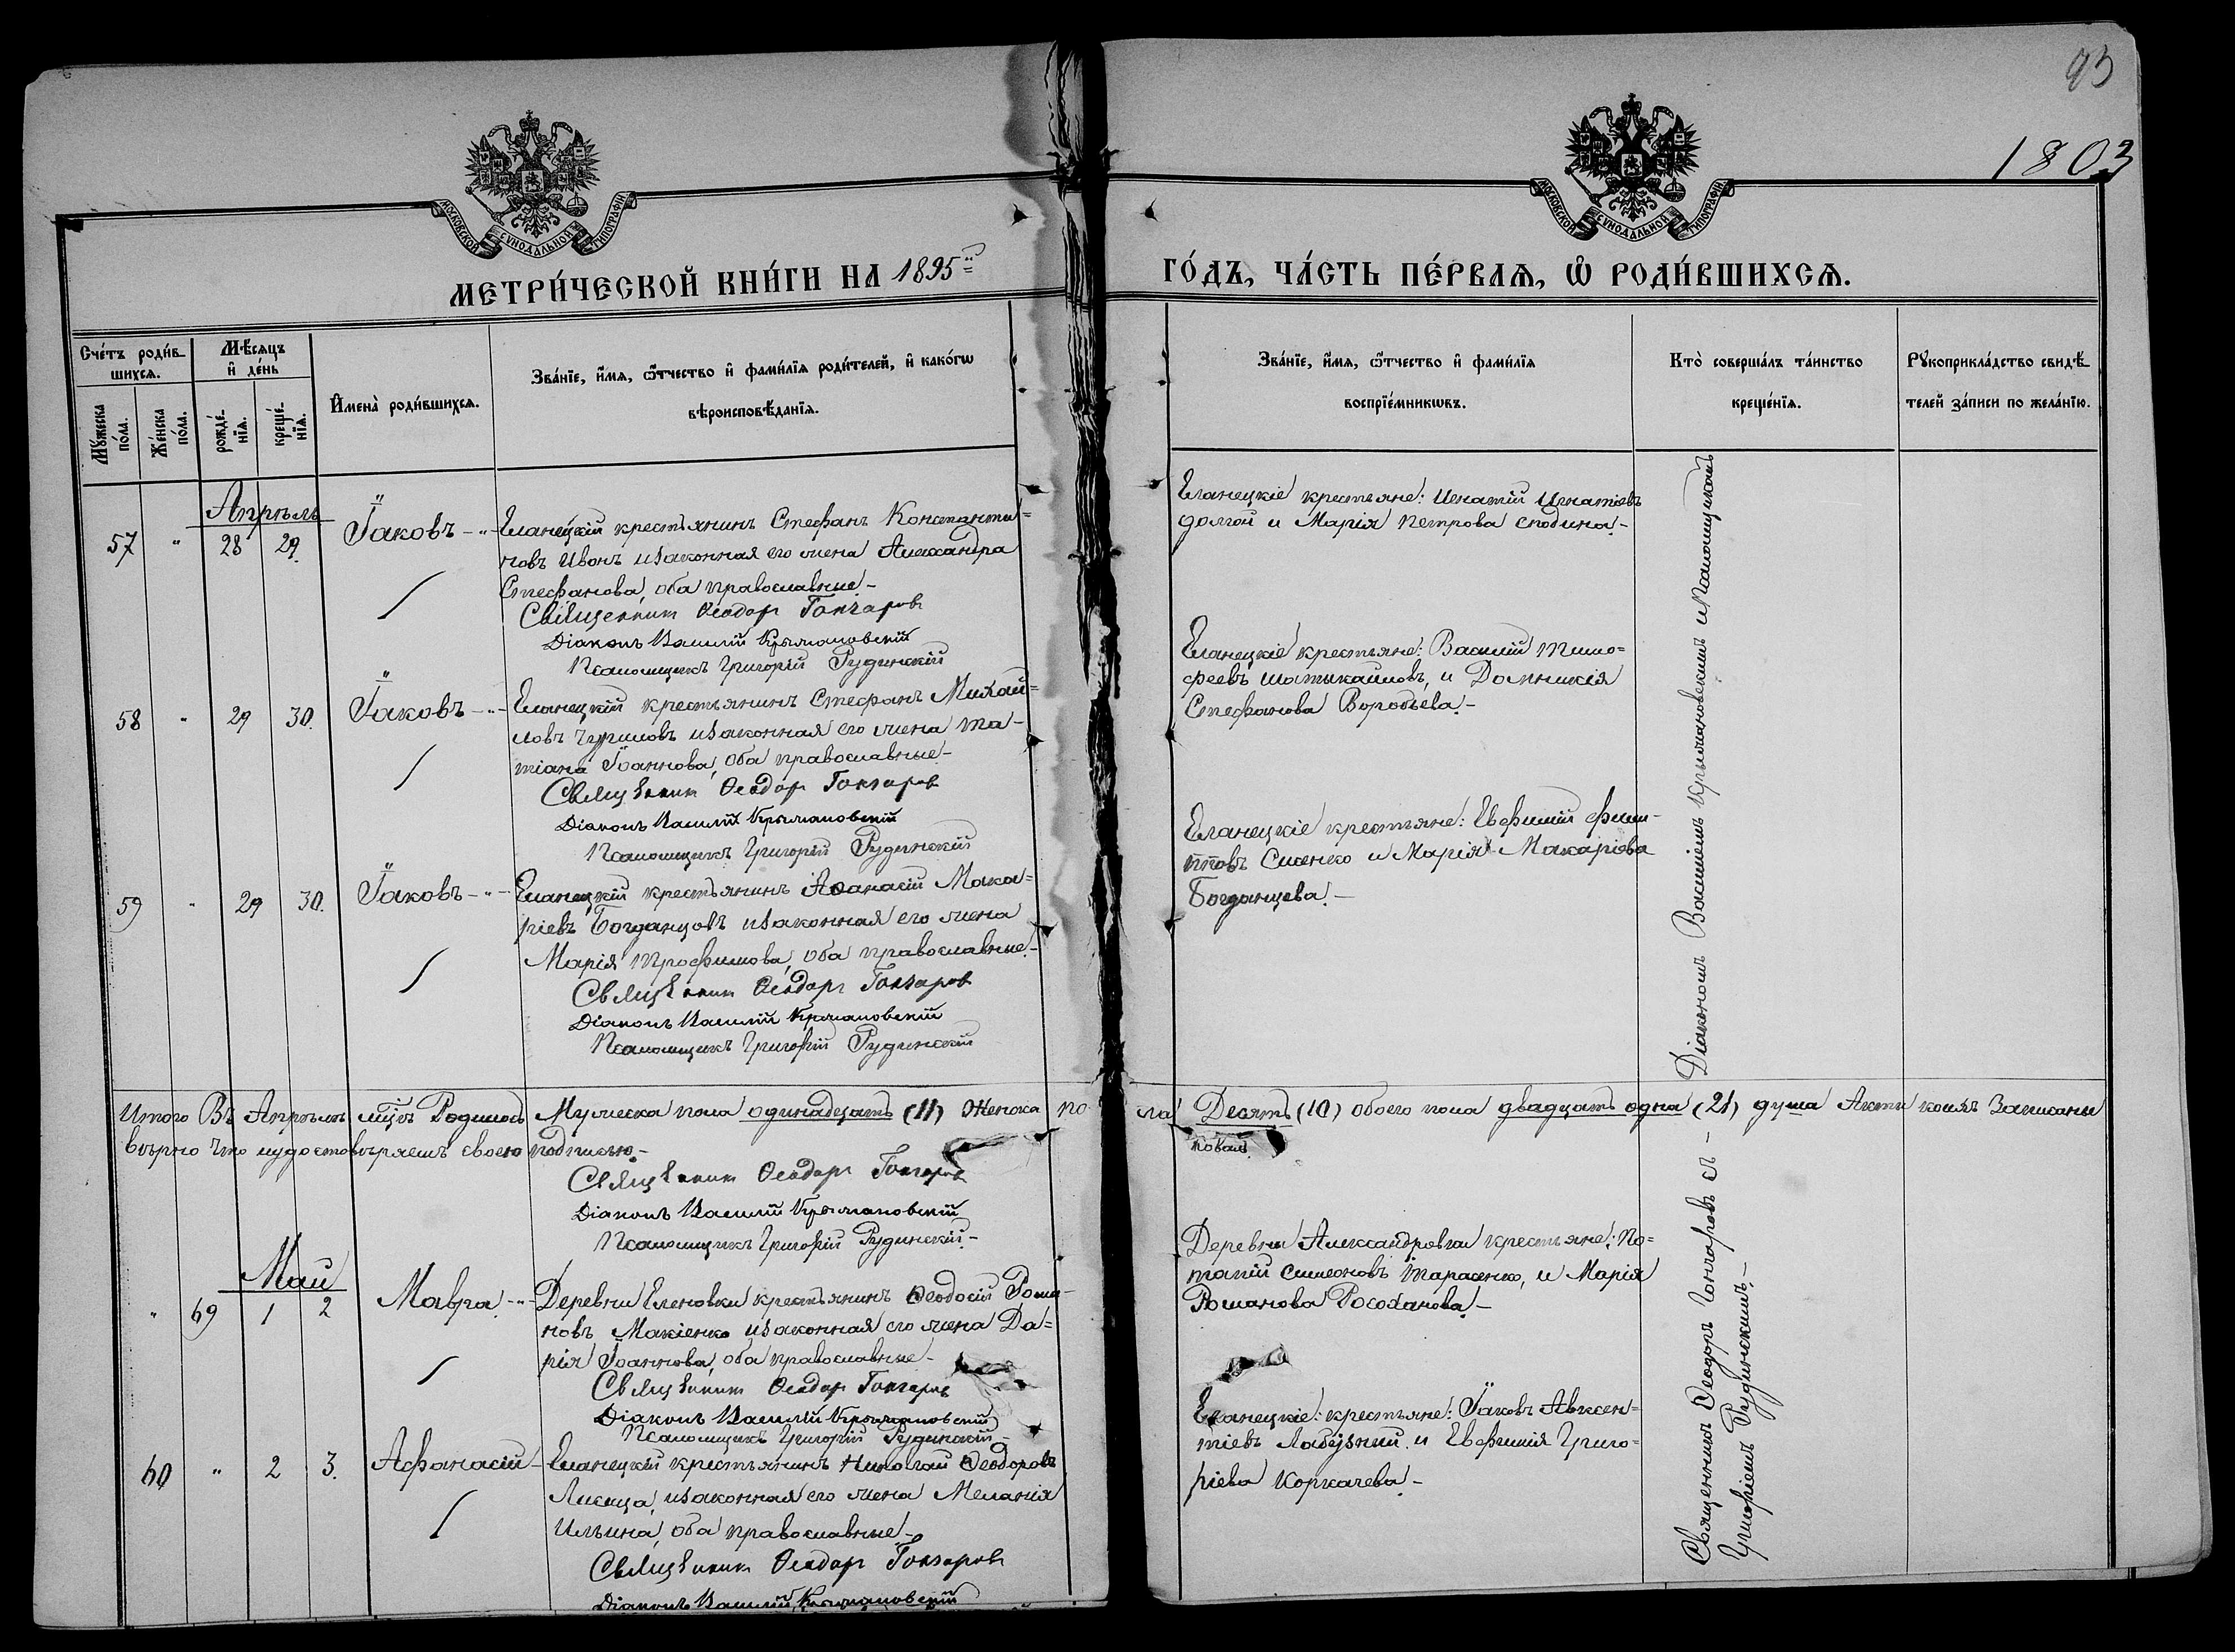 93
1803
МОСКОВСКОЙ СУНОДАЛЬНОЙ ТИПОГРАФІИ
МОСКОВСКОЙ СУНОДАЛЬНОЙ ТИПОГРАФІИ
МЕТРИ́ЧЕСКОЙ КНИ́ГИ НА 1895й
ГО́ДЪ, ЧА́СТЬ ПЕ́РВАѦ, Ѡ РОДИ́ВШИХСѦ.
Сче́тъ роди́вшихсѧ.
Мꙋжеска по́ла.
Же́нска по́ла.
Мѣ́сѧцъ и҆ де́нь
рожде́нїѧ.
креще́нїѧ.
И҆мена̀ роди́вшихсѧ.
Зва́нїе, и҆́мѧ, ѻ҆́тчество и҆ фами́лїѧ роди́телей, и҆ како́гѡ
вѣроисповѣ́данїѧ.
Зва́нїе, и҆́мѧ, ѻ҆́тчество и҆ фами́лїѧ
воспрїе́мникѡвъ.
Кто̀ соверша́лъ та́инство
креще́нїѧ.
Рꙋкоприкла́дство свидѣ́-
телей за́писи по жела́нїю.
Апрѣль
57 " 28 29. Іаковъ - " -
Еланецкій крестьянинъ Стефанъ Константи=
новъ Ивонъ и законная его жена Александра
Стефанова, оба православные. -
Священник Ѳеодор Гончаров
Діаконъ Василій Крыжановскій
Псаломщикъ Григорій Рудинскій
Еланецкіе крестьяне: Игнатій Игнатіевъ
Долгой и Марія Петрова Сподина. -
58 " 29 30. Іаковъ - " -
Еланецкій крестьянинъ Стефанъ Михай=
ловъ Чуриловъ и законная его жена Та-
тіана Іоаннова, оба православные -
Священник Ѳеодор Гончаров
Діаконъ Василій Крыжановскій
Псаломщикъ Григорій Рудинскій
Еланецкіе крестьяне: Василій Тимо=
феевъ и Домникія
Стефанова Воробьева. -
59 " 29 30. Іаковъ - " -
Еланецкій крестьянинъ Аѳанасій Мака=
ріевъ Богданцовъ и законная его жена
Марія Трофимова, оба православные. -
Священник Ѳеодор Гончаров
Діаконъ Василій Крыжановскій
Псаломщикъ Григорій Рудинскій
Еланецкіе крестьяне: Евфимій Фили-
пповъ и Марія Макаріева
Богданцева. -
Итого Въ Апрѣлѣ мцѣ Родилось Мужеска пола одинадцать (11) Женска по
ла Десять (10) обоего пола двадцать одна (21) душа Акты коихъ записаны
вѣрно Что и удостовѣряемъ своею подписью. -
Священник Ѳеодор Гончаров
Діаконъ Василій Крыжановскій
Псаломщикъ Григорій Рудинскій. -
Май
" 69 1 2 Мавра. - " -
Деревни Еленовки крестьянинъ Ѳеодосій Рома-
новъ Макіенко и законная его жена Да=
рія Іоаннова, оба православные -
Священник Ѳеодор Гончаров
Діаконъ Василій Крыжановскій
Псаломщикъ Григорій Рудинскій -
Деревни Александровки крестьяне: По=
тапій Симеоновъ Тарасенко, и Марія
Романова Росоханова. -
60 " 2 3. Афанасій -
Еланецкій крестьянинъ Николай Ѳеодоровъ
и законная его жена Меланія
Ильина, оба православные -
Священник Ѳеодор Гончаров
Діаконъ Василій Крыжановскій
Еланецкіе: крестьяне: Іаковъ Авксен=
тіевъ и Евфимія Григо=
ріева Коркачева. -
Священникъ Ѳеодоръ Гончаровъ съ - Діакономъ Василіемъ Крыжановскимъ и Псаломщикомъ
Григоріемъ Рудинскимъ. -